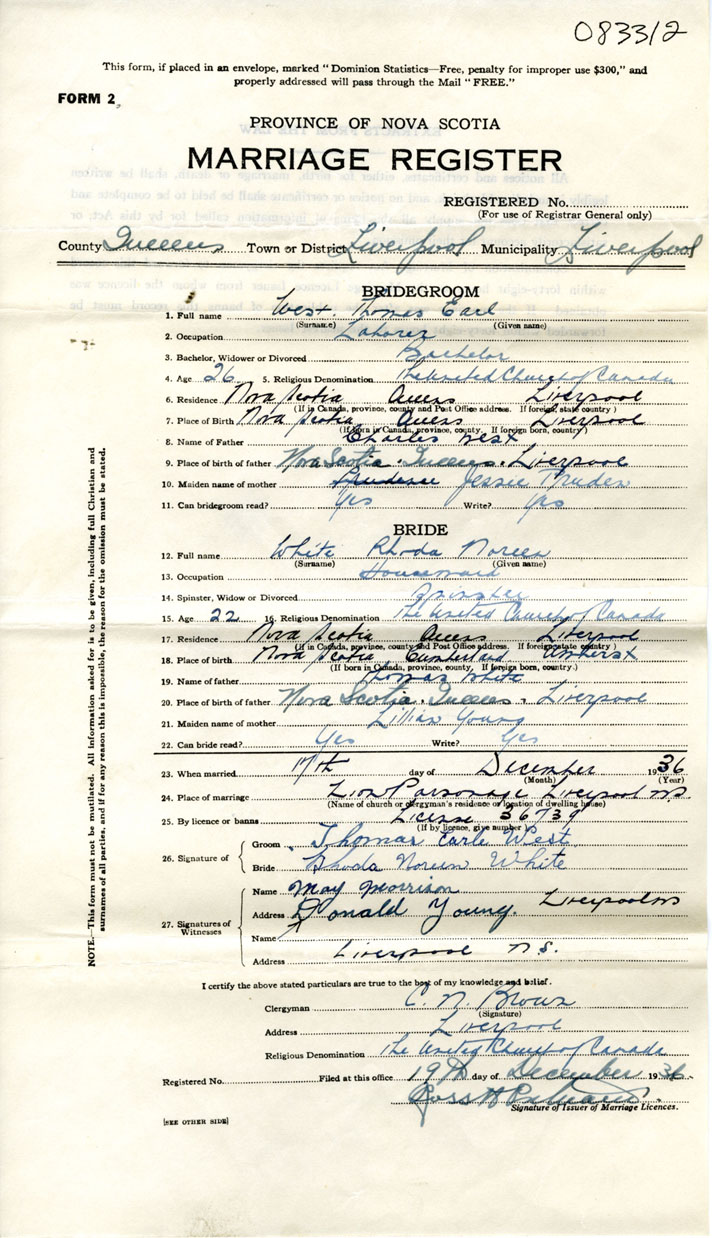 083312
This form, if placed in an envelope, marked "Dominion Statistics—Free, penalty for improper use $300," and
properly addressed will pass through the Mail "FREE."
FORM 2
PROVINCE OF NOVA SCOTIA
MARRIAGE REGISTER
REGISTERED No.
(For use of Registrar General only)
County Queens Town or District Liverpool Municipality Liverpool
BRIDEGROOM
1. Full name West Thomas Earl
(Surname) (Given name)
2. Occupation Laborer
3. Bachelor, Widower or Divorced Bachelor
4. Age 26 5. Religious Denomination The United Church of Canada
6. Residence Nova Scotia Queens Liverpool
(If in Canada, province, county and Post Office address. If foreign, state country)
7. Place of Birth Nova Scotia Queens Liverpool
(If born in Canada, province, county. If foreign born, country)
8. Name of Father Charles West
9. Place of birth of father Nova Scotia. Queens. Liverpool
10. Maiden name of mother Jessie
11. Can bridegroom read? Yes Write? Yes
BRIDE
12. Full name White Rhoda Noreen
(Surname) (Given name)
13. Occupation
14. Spinster, Widow or Divorced Spinster
15. Age 22 16. Religious Denomination The United Church of Canada
17. Residence Nova Scotia Queens Liverpool
(If in Canada, province, county and Post Office address. If foreign state country)
18. Place of birth Nova Scotia Cumberland Amherst
(If born in Canada, province, county. If foreign born, country.)
19. Name of father Thomas White
20. Place of birth of father Nova Scotia. Queens. Liverpool
21. Maiden name of mother Lillian Young
22. Can bride read? Yes Write? Yes
23. When married 17th day of December 1936
(Month) (Year)
24. Place of marriage Zion Parsonage Liverpool NS
(Name of church or clergyman's residence or location of dwelling house)
25. By licence or banns License 36739
(If by licence, give number)
26. Signature of
Groom Thomas Earle West
Bride Rhoda Noreen White
27. Signatures of Witnesses
Name May Morrison
Address Liverpool NS
Name Donald Young.
Address Liverpool N.S.
I certify the above stated particulars are true to the best of my knowledge and belief.
Clergyman C. N. Brown
(Signature)
Address Liverpool
Religious Denomination The United Church of Canada
Registered No. Filed at this office 19th day of December 1936
Ross H
Signature of Issuer of Marriage Licences.
[SEE OTHER SIDE]
NOTE.—This form must not be mutilated. All information asked for is to be given, including full Christian and
surnames of all parties, and if for any reason this is impossible, the reason for the omission must be stated.